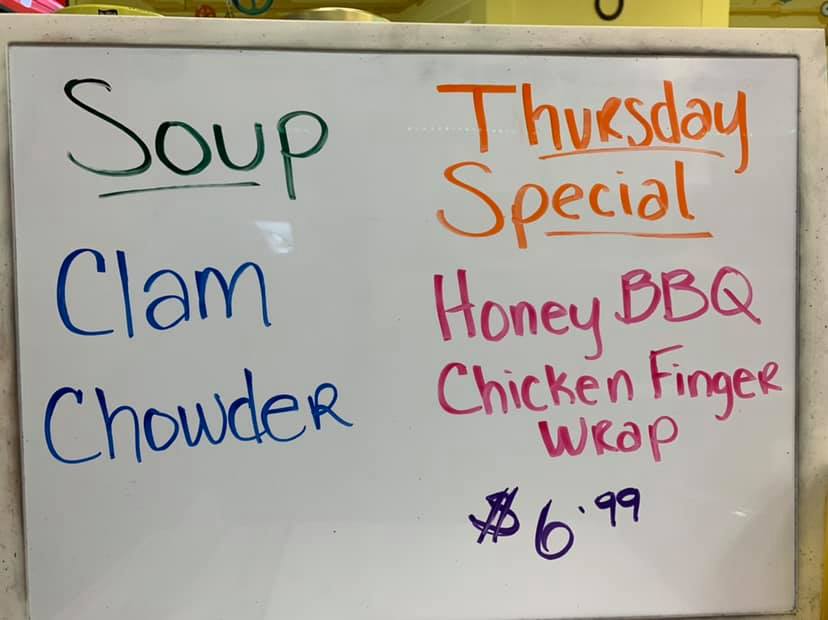 Soup
Clam
Chowder
Thursday
Special
Honey BBQ
Chicken Finger
Wrap
$6.99